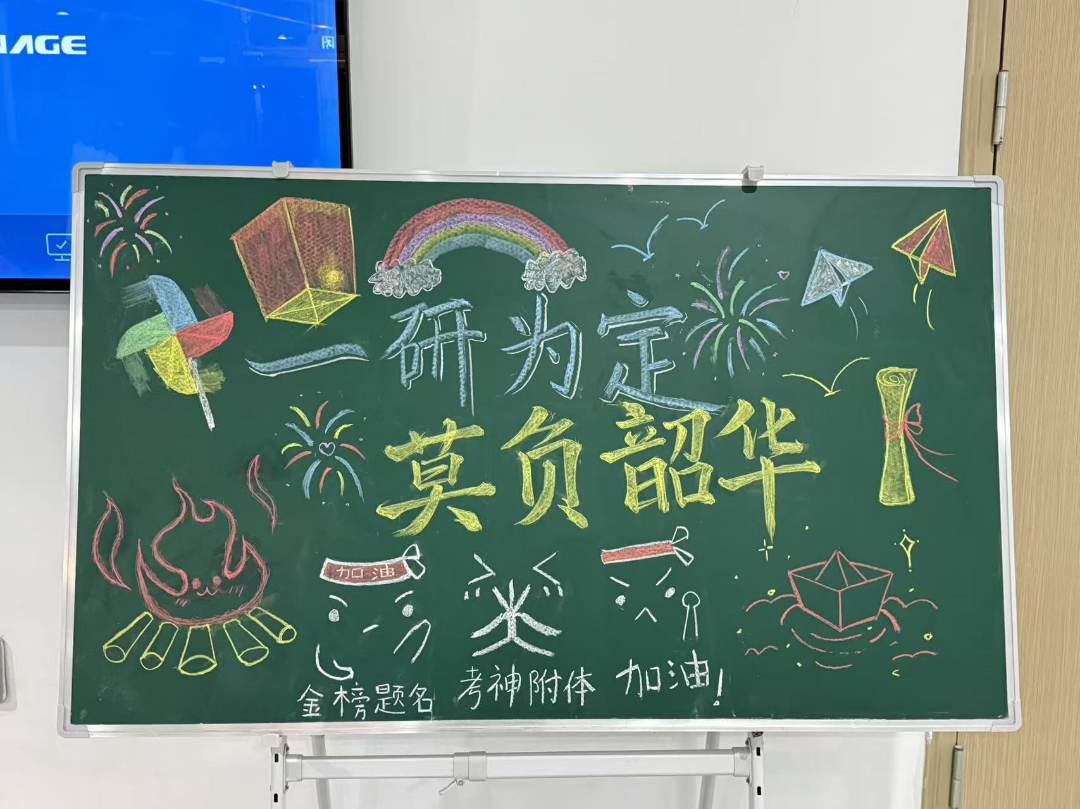 一研为定
莫负韶华
加油
金榜题名 考神附体 加油!